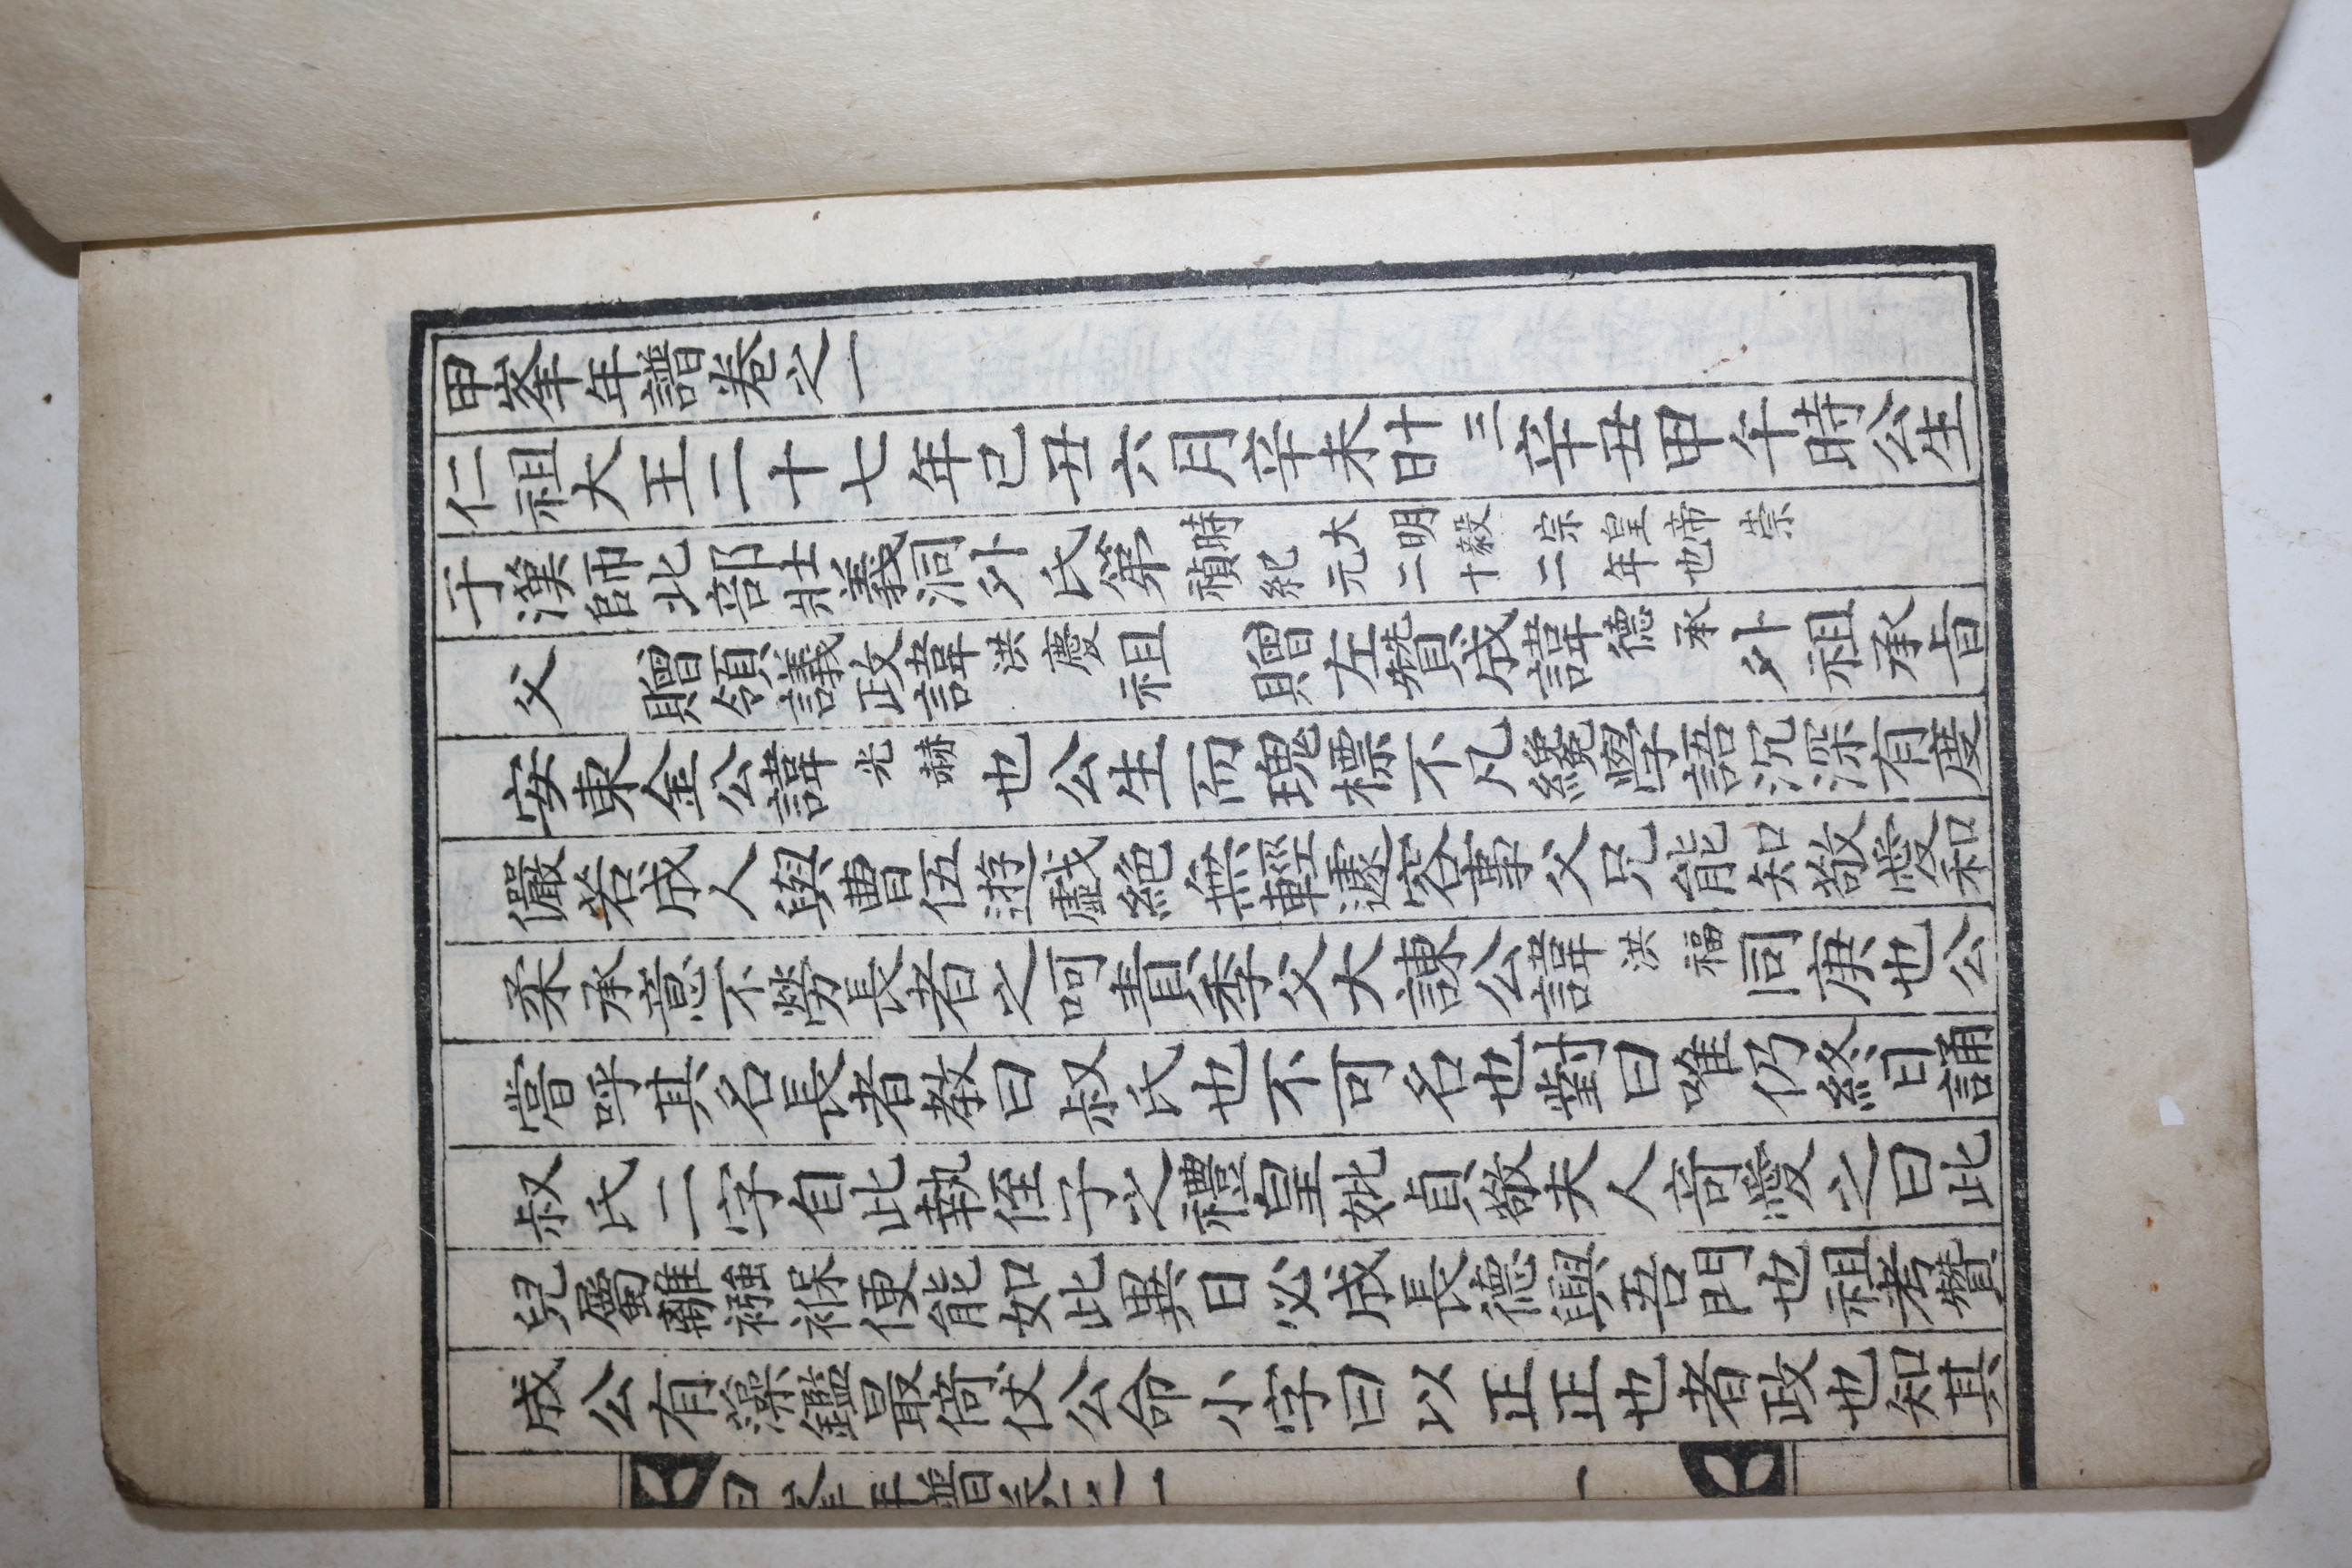 甲峯年譜卷之一
仁祖大王二十七年己丑六月辛未十三日辛丑甲午時公生
于漢師北部壯義洞外氏第時大明毅宗皇帝崇禎紀元二十二年也
父 贈領議政諱洪慶祖 贈左贊成諱德承外祖承旨
安東金公諱光赫也公生而瑰標不凡纔學語沉深有度
儼若成人與曹伍遊戱絶無輕遽容事父兄能知敬愛和
柔承意不勞長者之呵責季父大諫公諱洪福同庚也公
嘗呼其名長者教曰叔氏也不可名也對曰唯仍終日誦
叔氏二字自此執侄子之禮皇妣貞敬夫人奇愛之曰此
兒屬離襁褓便能如此異日必成長德興吾門也祖考贊
成公有藻鑑最倚仗公命小字曰以正正也者政也知其
甲峯年譜卷之一 一